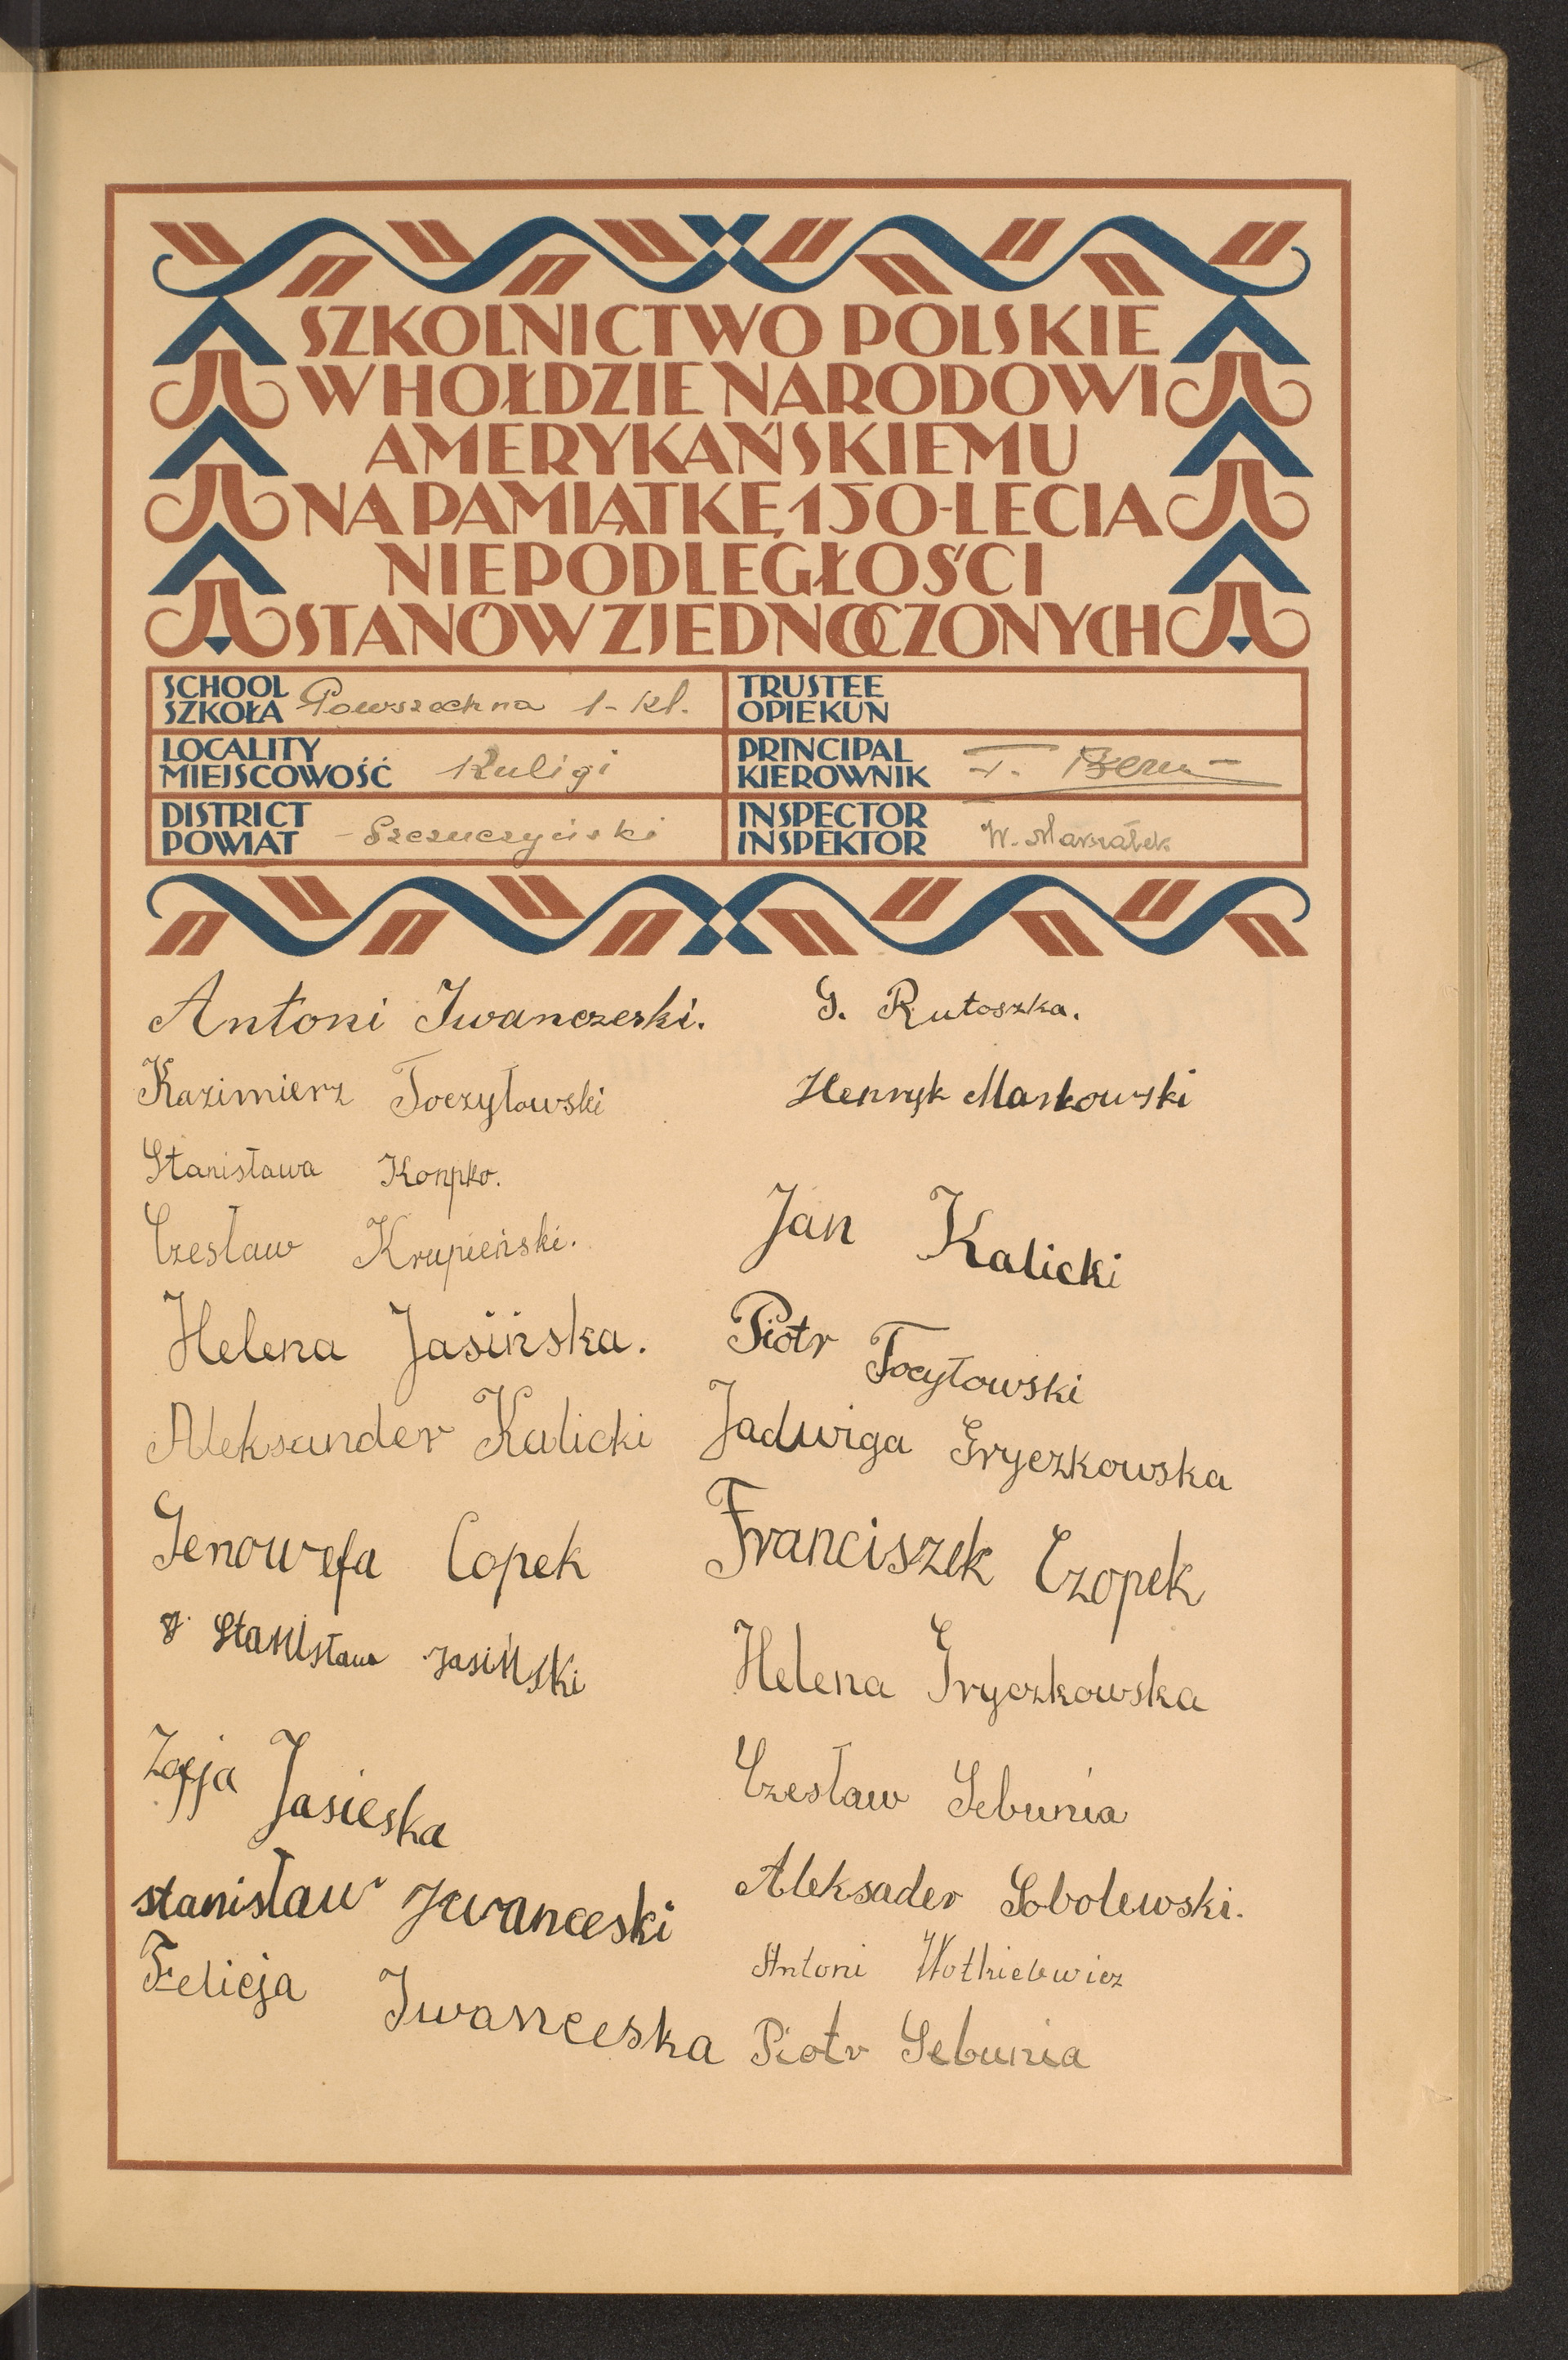 SZKOLNICTWO POLSKIE
W HOŁDZIE NARODOWI
AMERYKAŃSKIEMU
NA PAMIĄTKĘ 150-LECIA
NIEPODLEGŁOŚCI
STANÓW ZJEDNOCZONYCH
SCHOOL
SZKOŁA Powszechna 1-kl.
LOCALITY
MIEJSCOWOŚĆ Kuligi
DISTRICT
POWIAT - Szczuczyński
TRUSTEE
OPIEKUN
PRINCIPAL
KIEROWNIK
INSPECTOR
INSPEKTOR W. Marszałek
Antoni Iwanczeski.
Kazimierz Toczyłowski
Stanisława Konpko.
Czesław Krupieński.
Helena Jasińska.
Aleksander Kalicki
Genowefa Copek
Stanisława Jasiński
Zofja Jasieska
stanisław Iwanceski
Felicja Iwanceska
G. Rutoszka.
Henryk Markowski
Jan Kalicki
Piotr Tocyłowski
Jadwiga Gryczkowska
Franciszek Czopek
Helena Gryczkowska
Czesław Sebunia
Aleksader Sobolewski.
Antoni
Piotr Sebunia